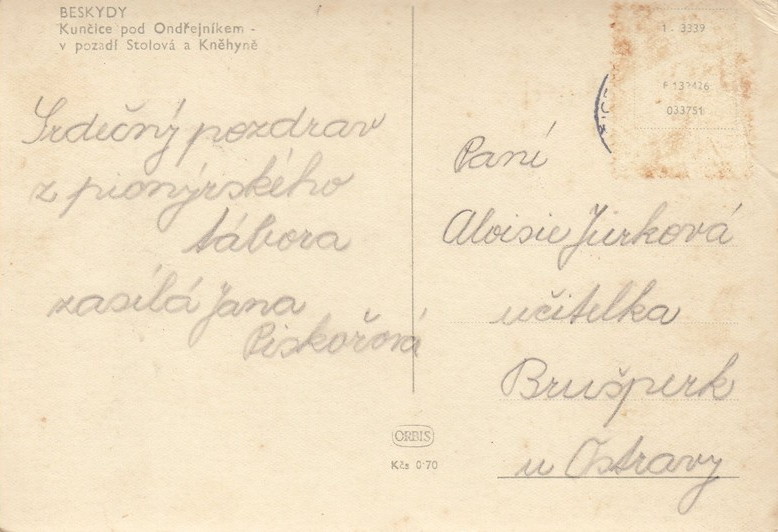 BESKYDY
Kunčice pod Ondřejníkem -
v pozadí Stolová a Kněhyně
Srdečný pozdrav
z pionýrského
tábora
zasílá Jana
Piskořová
1 - 3339
033751
Paní
Aloisie Jurková
učitelka
Brušperk
u Ostravy
ORBIS
Kčs 0·70